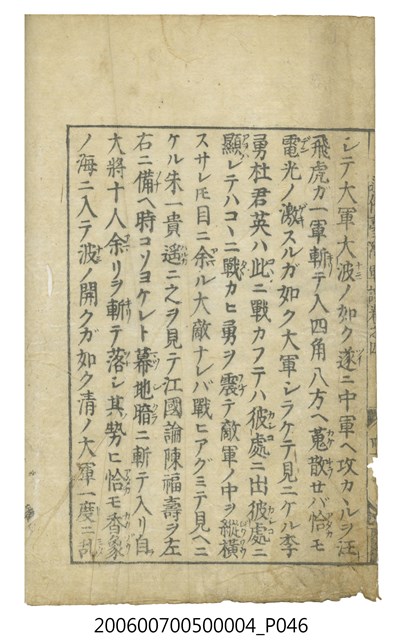 シテ大軍大波ノ如ク遂ニ中軍ヘ攻カヽルヲ江
飛虎カ一軍斬テ入四角八方ヘ蒐散セバ恰モ
電光ノ激スルガ如ク大軍シラケテ見ニケル李
勇杜君英ハ此ニ戰カフテハ彼處ニ出彼處ニ
顯レテハコヽニ戰カヒ勇ヲ震テ敵軍ノ中ヲ縱横
スサレ𪜈目ニ余ル大敵ナレバ戰ヒアグミテ見ヘニ
ケル朱一貴遥ニ之ヲ見テ江國論陳福壽ヲ左
右ニ備ヘ時コソヨケレト幕地暗ニ斬テ入リ自
大將十人余リヲ斬テ落シ其勢ヒ恰モ香象
ノ海ニ入テ波ノ開クガ如ク清ノ大軍一度ニ乱
200600700500004_P046